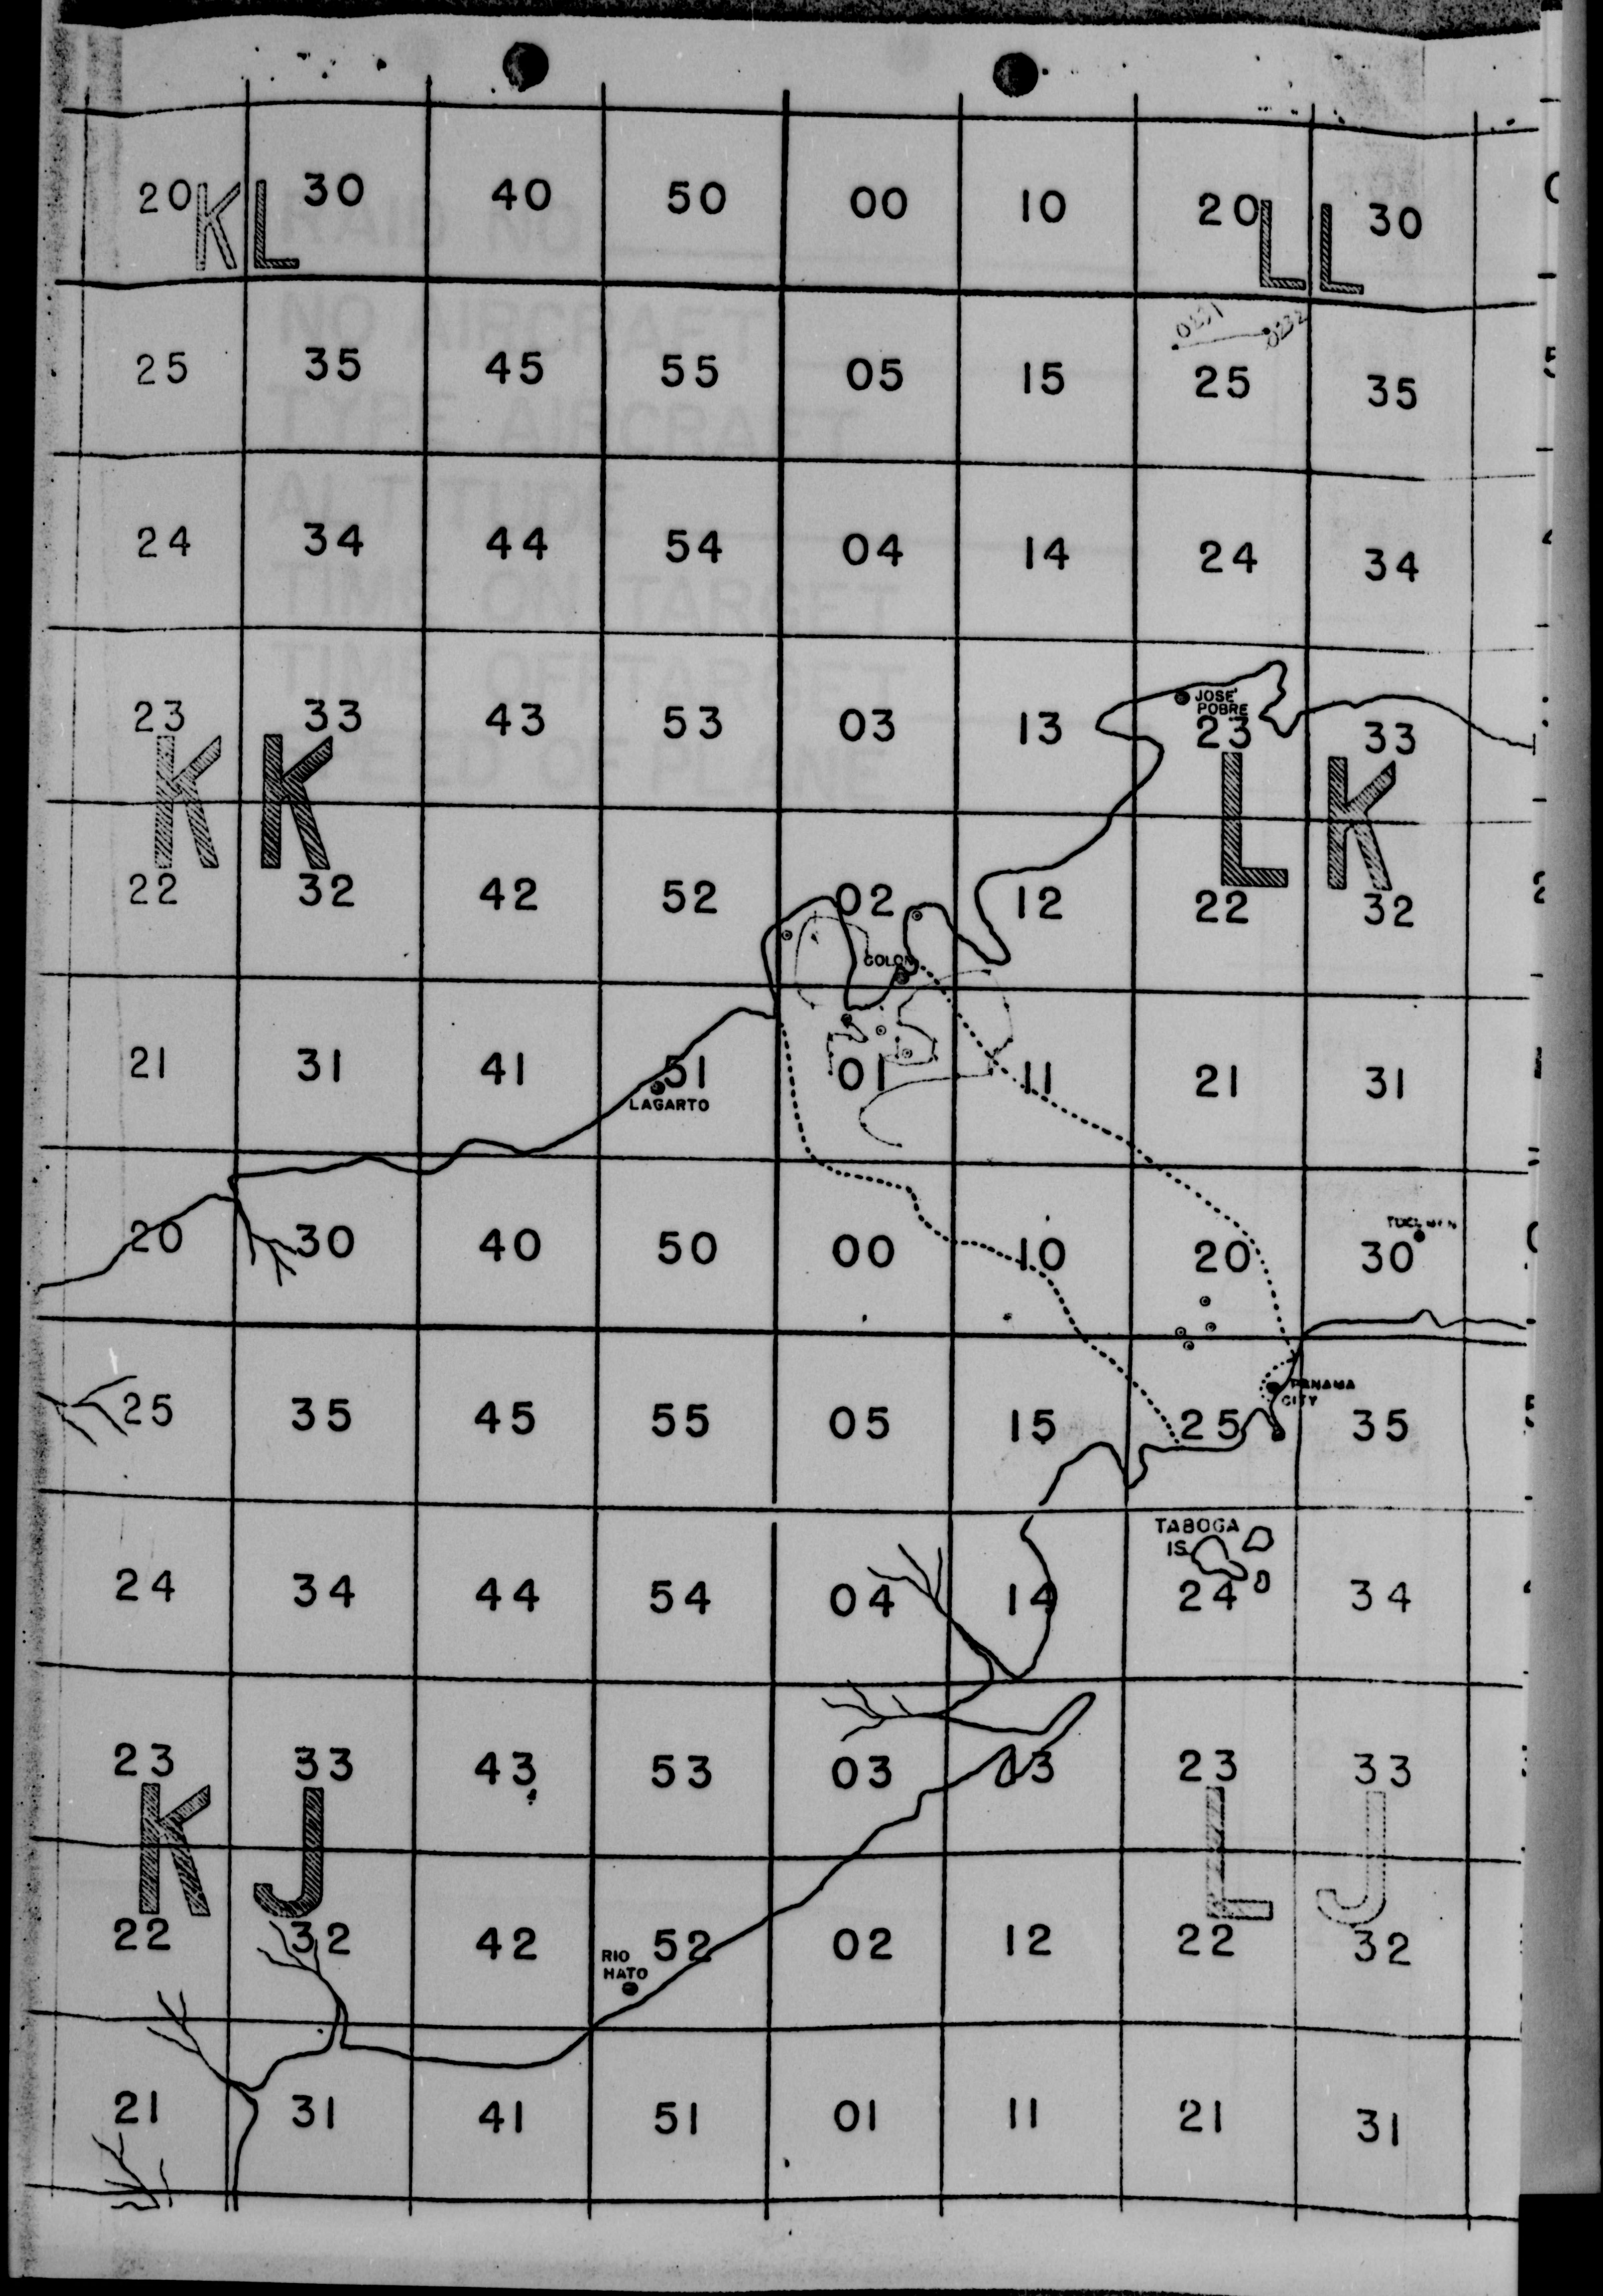 20 30 40 50 00 10 20 30
K L L L
RAID NO
NO AIRCRAFT
0231 0232
25 35 45 55 05 15 25 35
TYPE AIRCRAFT
ALTITUDE
24 34 44 54 04 14 24 34
TIME ON TARGET
TIME OFF TARGET
JOSE'
POBRE
23 33 43 53 03 13 23 33
OF PLANE
K K L K
22 32 42 52 02 12 22 32
COLON
21 31 41 51 01 11 21 31
LAGARTO
20 30 40 50 00 10 20 30
PANAMA
CITY
25 35 45 55 05 15 25 35
TABOGA
IS.
24 34 44 54 04 14 24 34
23 33 43 53 03 13 23 33
K J L J
22 32 42 52 02 12 22 32
RIO
HATO
21 31 41 51 01 11 21 31